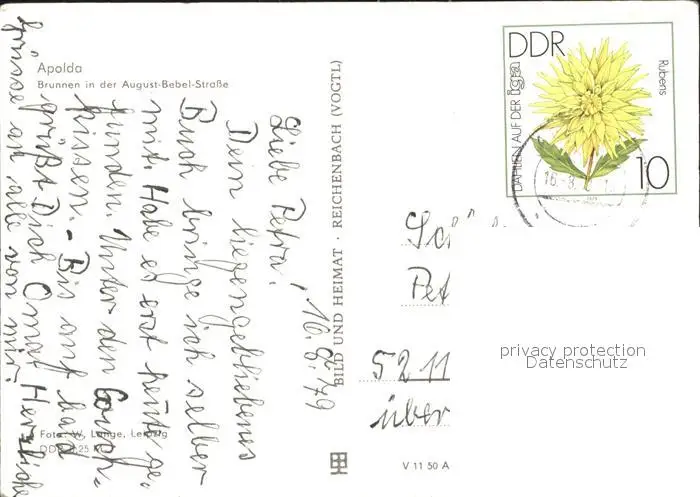 Apolda
Brunnen in der August-Bebel-Straße
Liebe Petra! 16.8.79
Dein liegengebliebenes
Buch bringe ich selber
mit. Habe es erst heute ge-
funden. Unter den Couch-
kissen. - Bis auf bald
grüßt Dich Oma! Herzliche
Grüsse an alle von mir!
Foto: W. Lange, Leipzig
BILD UND HEIMAT · REICHENBACH (VOGTL)
V 11 50 A
DDR
DAHLIEN AUF DER iga
Rubens
10
16.8.
Pet
5211
über
privacy protection
Datenschutz